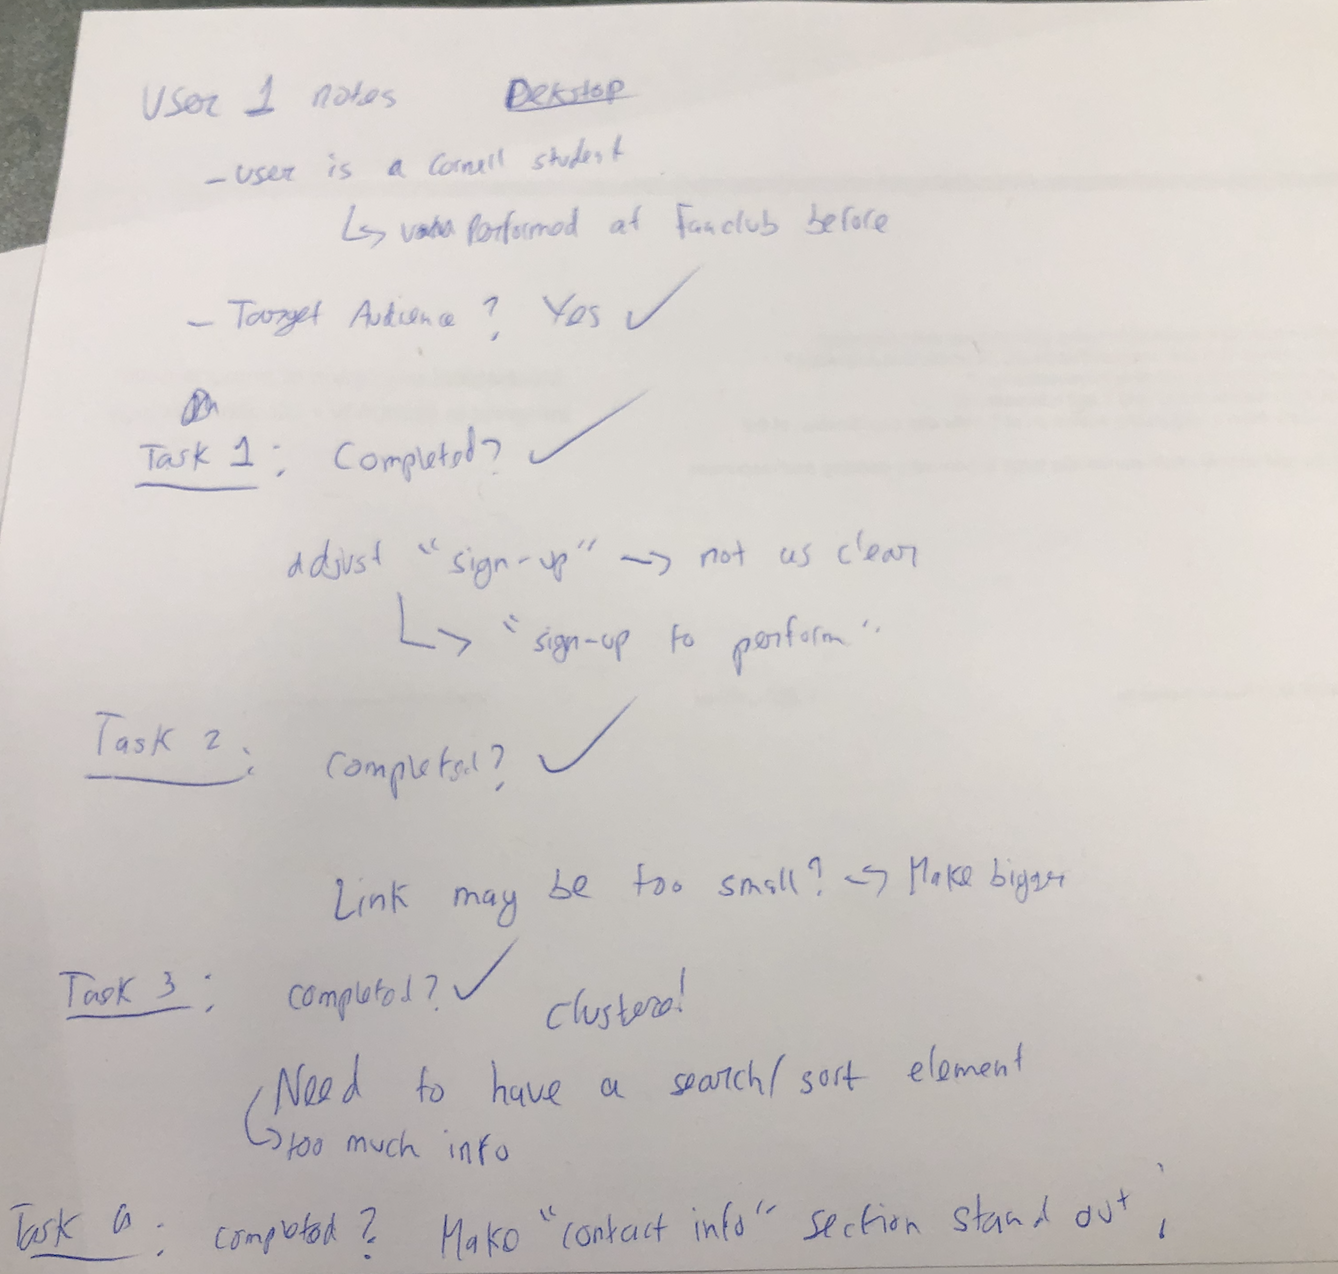 User 1 notes Dekstop
- user is a Cornell student
↳ performed at Fanclub before
- Target Audience? Yes ✓
Task 1: Completed? ✓
adjust "sign-up" → not as clear
↳ "sign-up to perform"
Task 2: completed? ✓
Link may be too small? → Make bigger
Task 3: completed? ✓ Clustered!
Need to have a search/sort element
↳ too much info
Task : completed? Make "contact info" section stand out